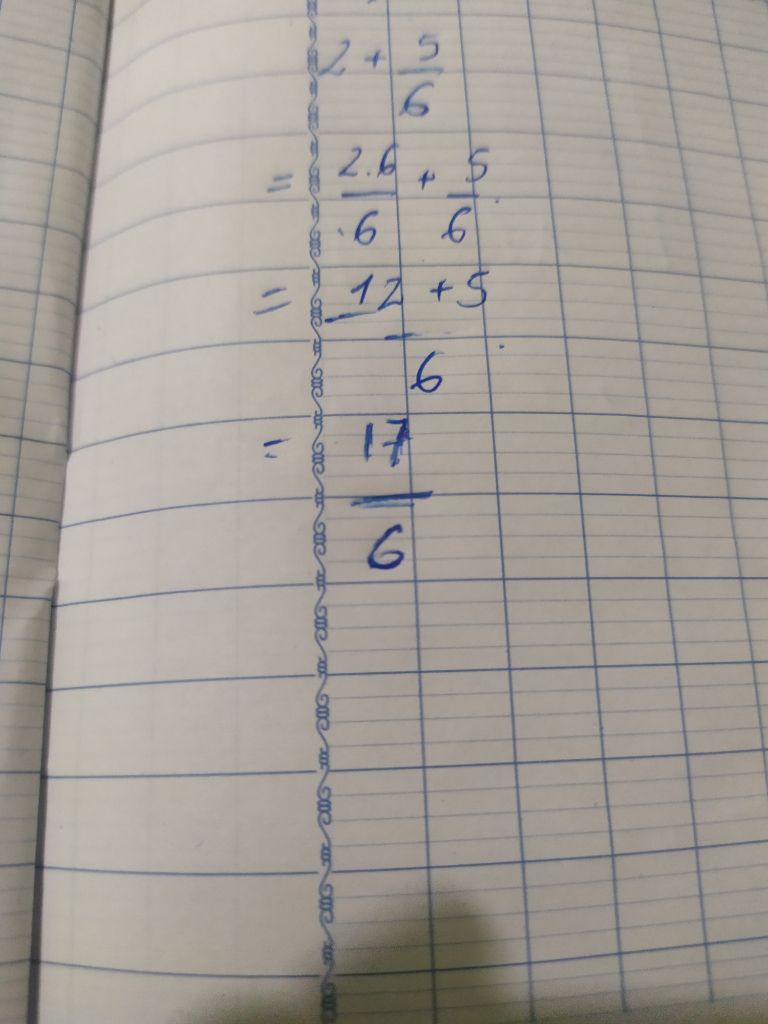 2 + 5/6
= 2.6/6 + 5/6
= 12 + 5/6
= 17/6